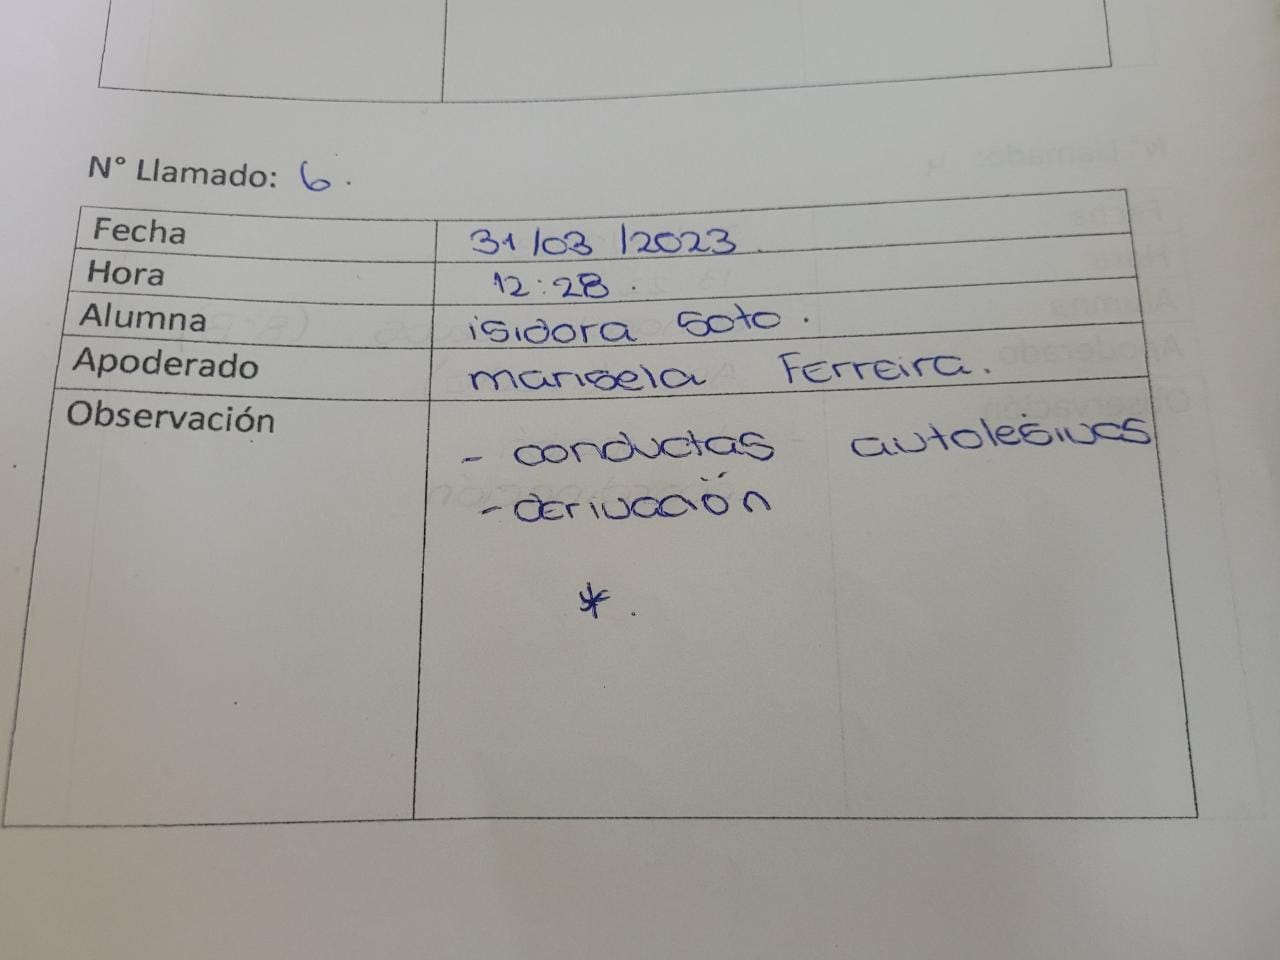 N° Llamado: 6.
Fecha 31/03/2023.
Hora 12:28.
Alumna isidora soto.
Apoderado marisela Ferreira.
Observación - conductas autolesivas
- derivación
*.